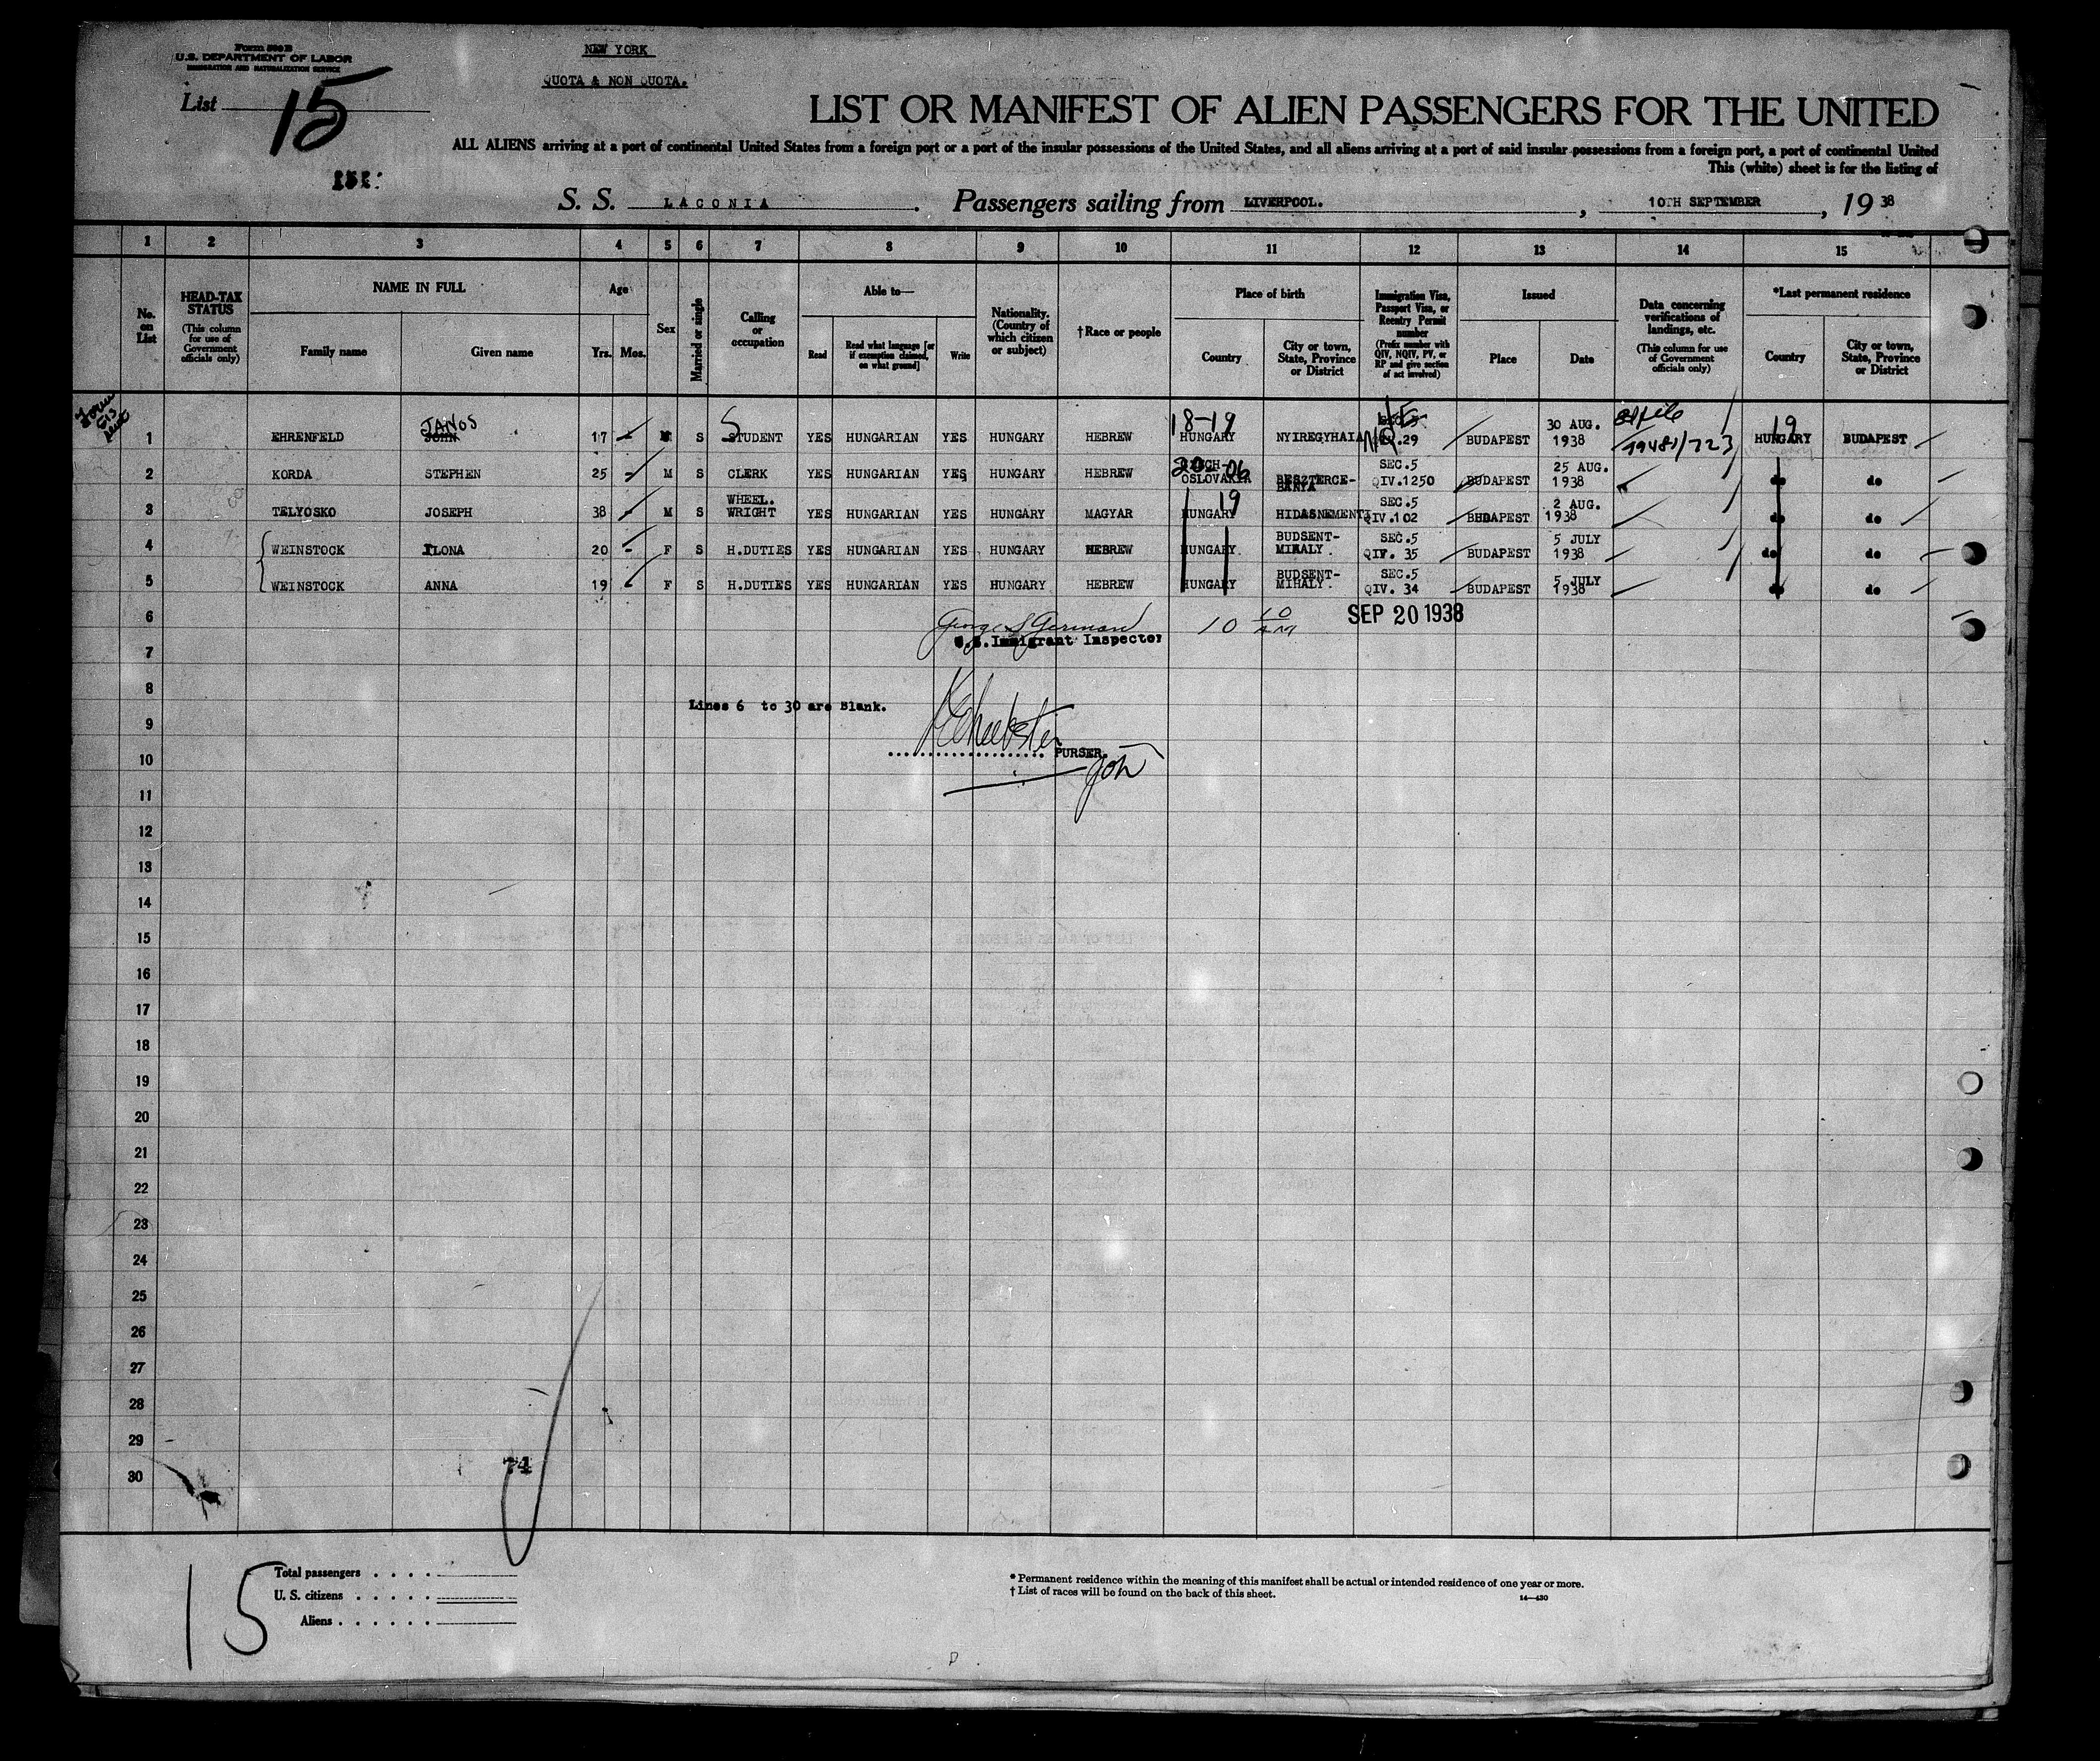 Form 500 B
U.S. DEPARTMENT OF LABOR
IMMIGRATION AND NATURALIZATION SERVICE
NEW YORK
QUOTA & NON QUOTA.
List 15
LIST OR MANIFEST OF ALIEN PASSENGERS FOR THE UNITED
ALL ALIENS arriving at a port of continental United States from a foreign port or a port of the insular possessions of the United States, and all aliens arriving at a port of said insular possessions from a foreign port, a port of continental United
This (white) sheet is for the listing of
S. S. LACONIA. Passengers sailing from LIVERPOOL., 10TH SEPTEMBER, 19 38
1 2 3 4 5 6 7 8 9 10 11 12 13 14 15
No. on List
HEAD-TAX STATUS (This column for use of Government officials only)
NAME IN FULL Family name Given name
Age Yrs. Mos.
Sex
Married or single
Calling or occupation
Able to— Read Read what language [or if exemption claimed, on what ground] Write
Nationality. (Country of which citizen or subject)
†Race or people
Place of birth Country City or town, State, Province or District
Immigration Visa, Passport Visa, or Reentry Permit number (Prefix number with QIV, NQIV, PV, or RP and give section of act involved)
Issued Place Date
Data concerning verifications of landings, etc. (This column for use of Government officials only)
*Last permanent residence Country City or town, State, Province or District
1 EHRENFELD JOHN JANOS 17 M S STUDENT YES HUNGARIAN YES HUNGARY HEBREW 18-19 HUNGARY NYIREGYHAIA .29 BUDAPEST 30 AUG. 1938 19 HUNGARY BUDAPEST
2 KORDA STEPHEN 25 M S CLERK YES HUNGARIAN YES HUNGARY HEBREW CZECH-OSLOVAKIA BESZTERCE-BANIA SEC.5 QIV.1250 BUDAPEST 25 AUG. 1938 do do
3 TELYOSKO JOSEPH 38 M S WHEEL. WRIGHT YES HUNGARIAN YES HUNGARY MAGYAR 19 HUNGARY HIDASNEMENTI SEC.5 QIV.102 BUDAPEST 2 AUG. 1938 do do
4 WEINSTOCK ILONA 20 F S H.DUTIES YES HUNGARIAN YES HUNGARY HEBREW HUNGARY. BUDSENT-MIHALY. SEC.5 QIV. 35 BUDAPEST 5 JULY 1938 do do
5 WEINSTOCK ANNA 19 F S H.DUTIES YES HUNGARIAN YES HUNGARY HEBREW HUNGARY BUDSENT-MIHALY. SEC.5 QIV. 34 BUDAPEST 5 JULY 1938 do do
6 SEP 20 1938
U.S. Immigrant Inspector
7
8
Lines 6 to 30 are Blank.
9
PURSER.
10
11
12
13
14
15
16
17
18
19
20
21
22
23
24
25
26
27
28
29
74
30
15
Total passengers . . . .
U. S. citizens . . . . .
Aliens . . . . . .
* Permanent residence within the meaning of this manifest shall be actual or intended residence of one year or more.
† List of races will be found on the back of this sheet.
14—430